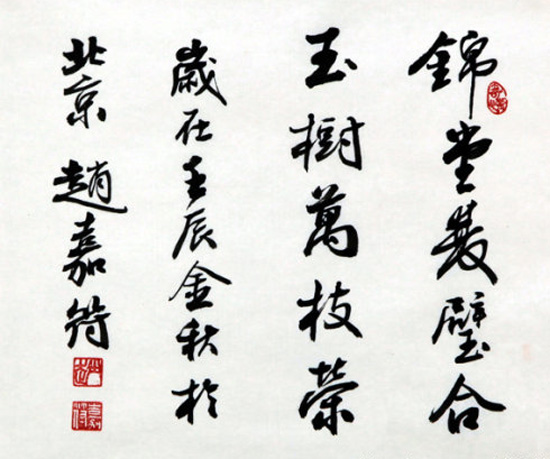 錦堂雙璧合
玉樹萬枝榮
歲在壬辰金秋於
北京 趙嘉符